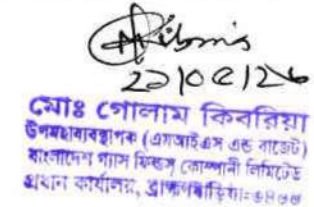 ২১/০৫/২৬
মোঃ গোলাম কিবরিয়া
উপমহাব্যবস্থাপক (এমআইএস এন্ড বাজেট)
বাংলাদেশ গ্যাস ফিল্ডস্ কোম্পানী লিমিটেড
প্রধান কার্যালয়, ব্রাহ্মণবাড়িয়া-৩৪০০